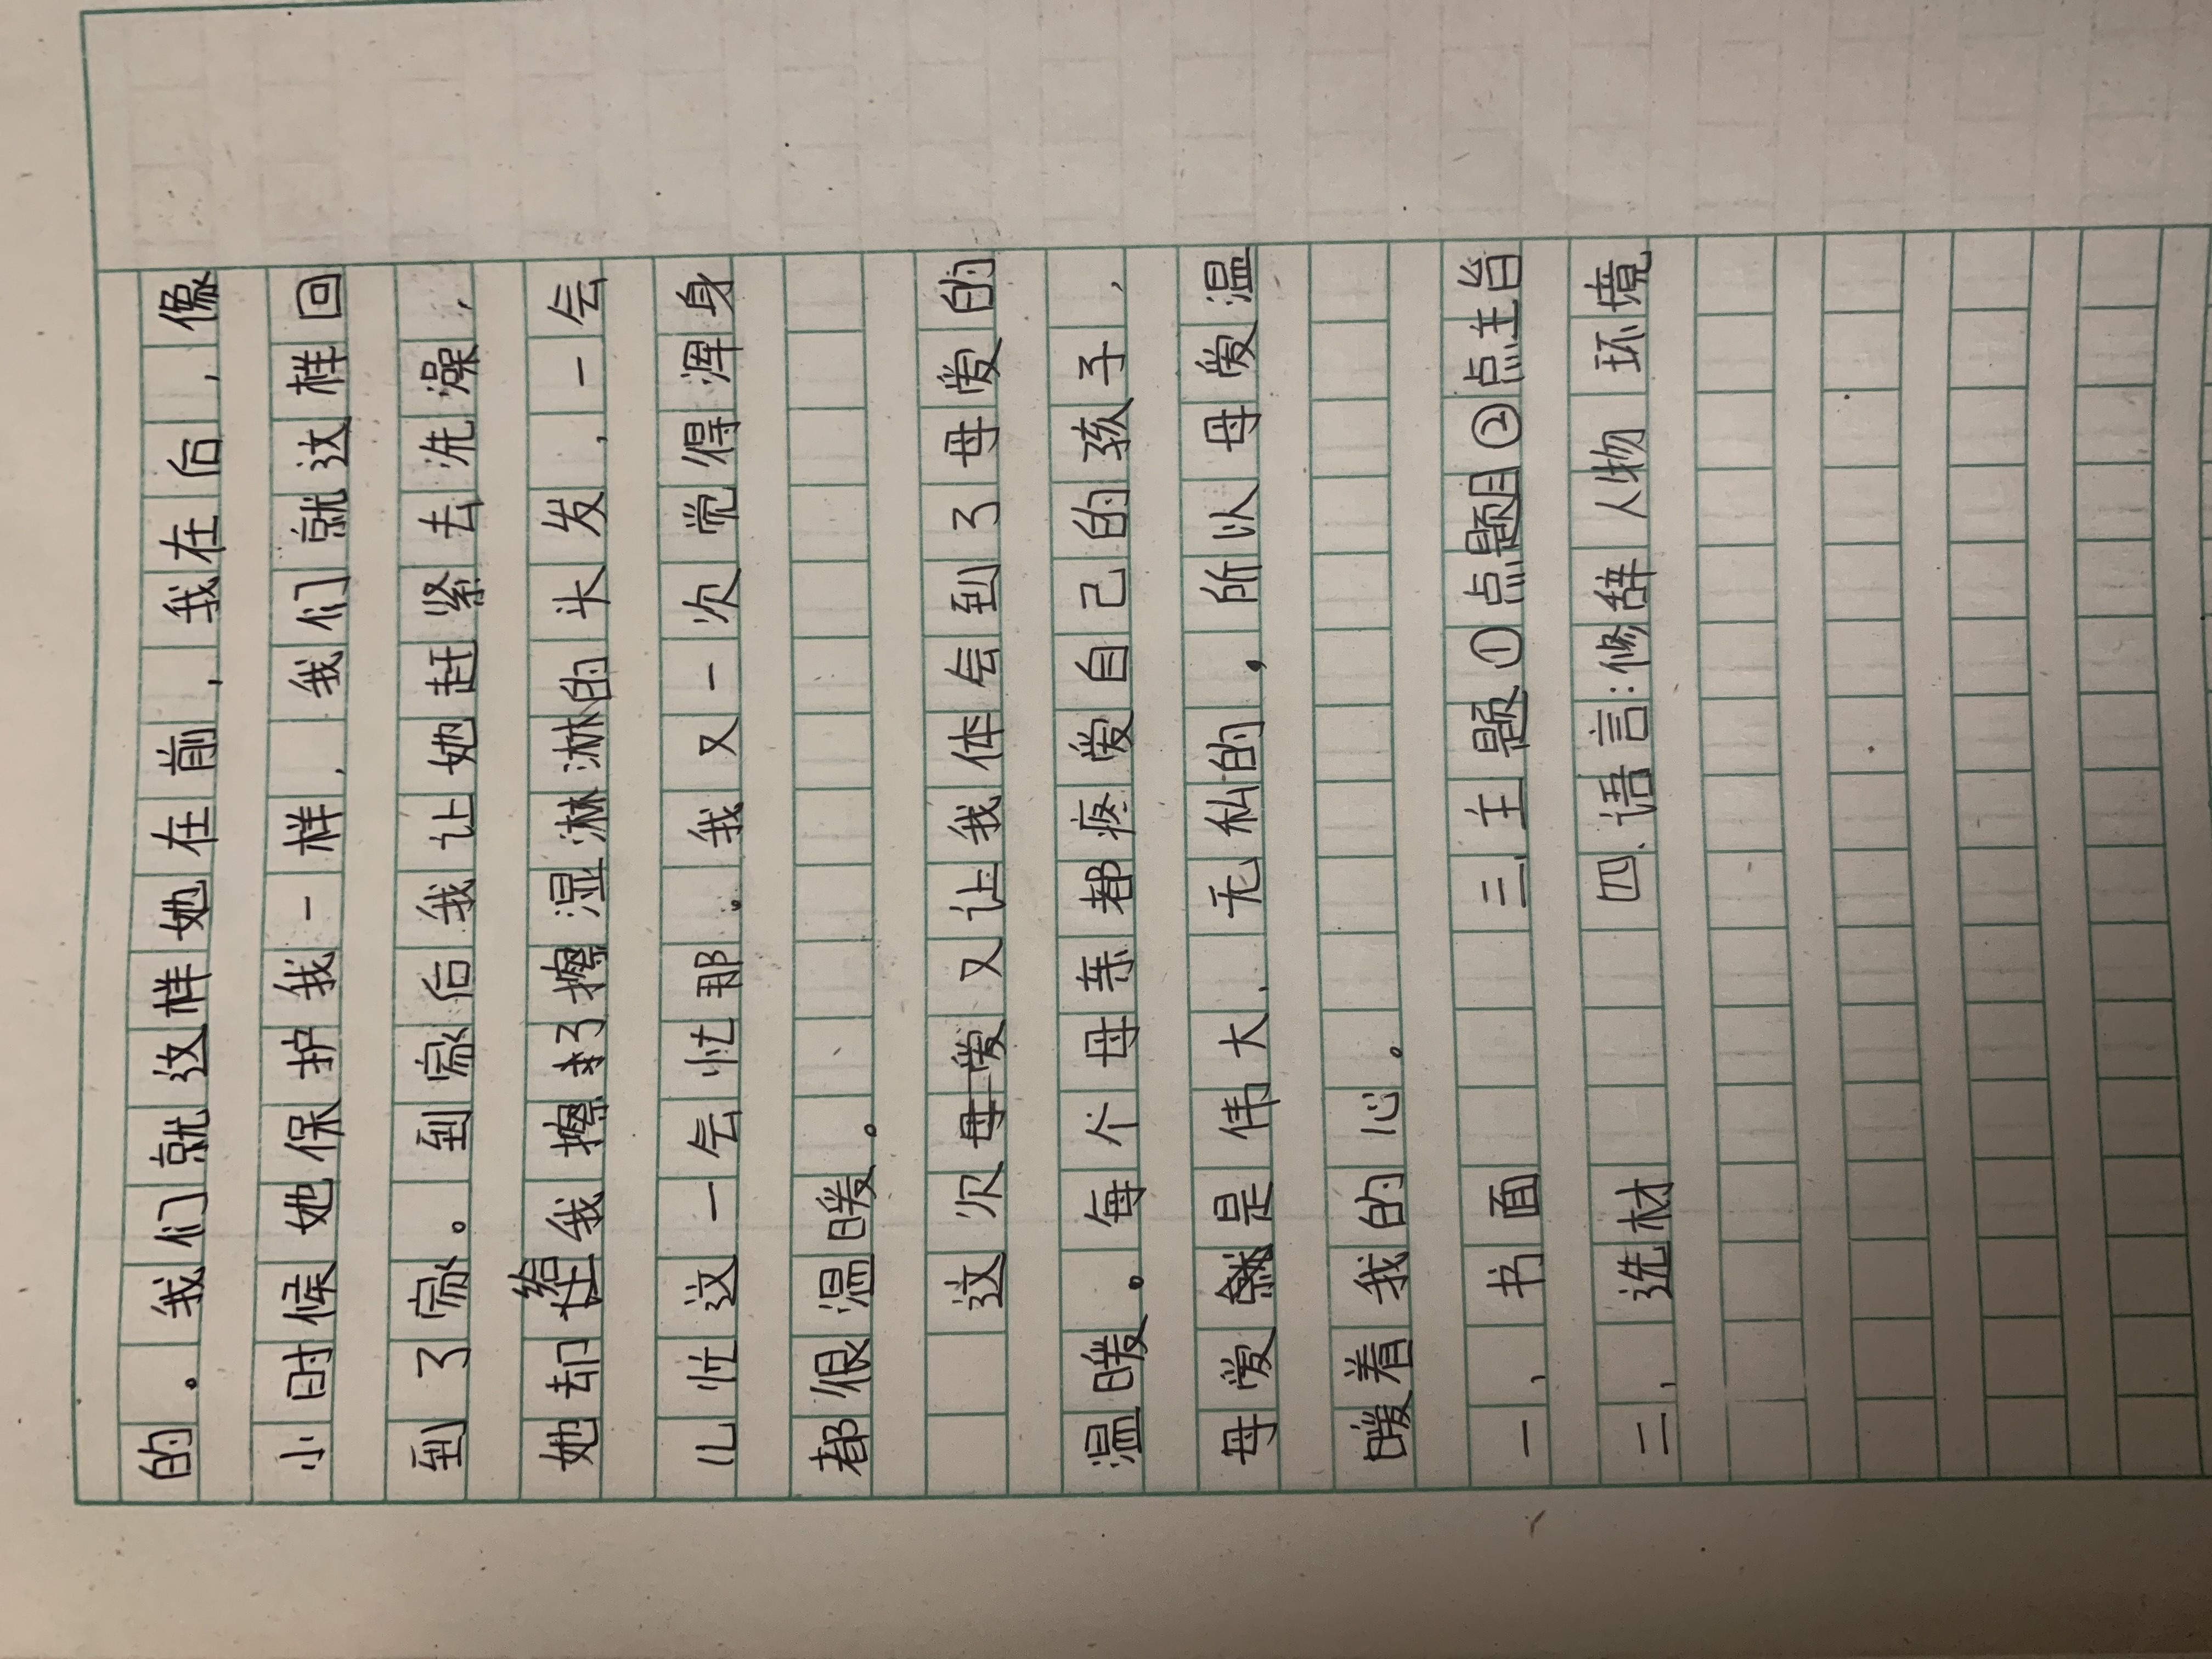 的。我们就这样她在前,我在后,像
小时候她保护我一样,我们就这样回
到了家。到家后我让她赶紧去洗澡,
她却给我擦了擦湿淋淋的头发,一会
儿忙这一会忙那。我又一次觉得浑身
都很温暖。
这次母爱又让我体会到了母爱的
温暖。每个母亲都疼爱自己的孩子,
母爱是伟大、无私的,所以母爱温
暖着我的心。
一、书面 三、主题①点题目②点主旨
二、选材 四、语言:修辞 人物 环境